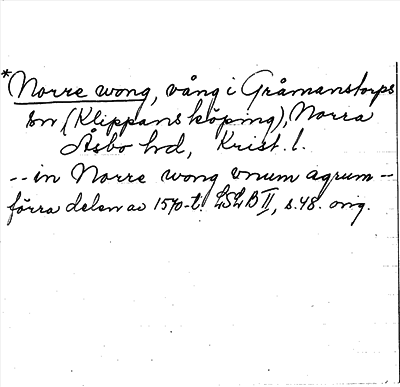 *Norre wong, vång i Gråmanstorps
sn (Klippans köping), Norra
Åsbo hd, Krist. l.
-- in Norre wong vnum agrum --
förra delen av 1570-t. LSLB II, s. 48. orig.